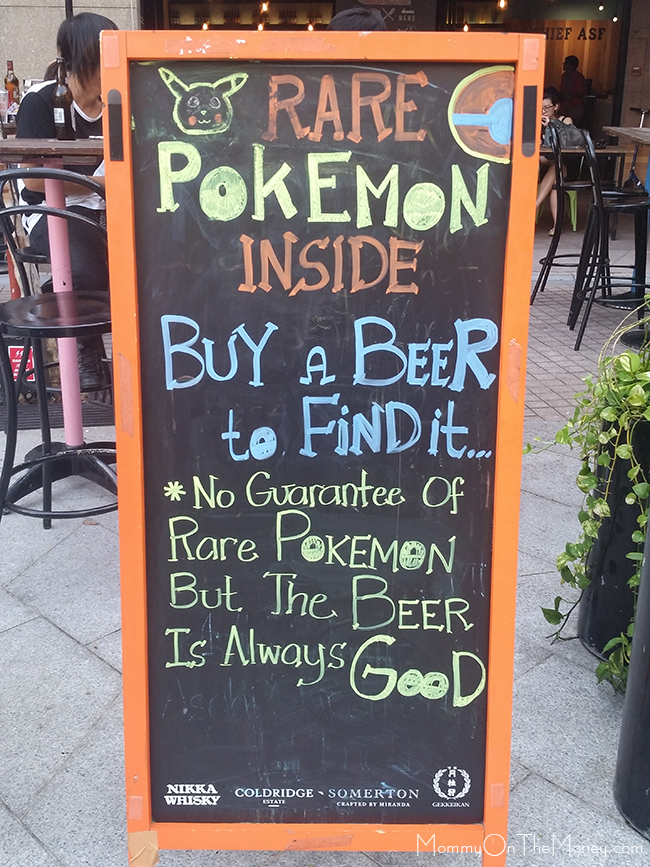 RARE
POKEMON
INSIDE
BUY A BEER
to FINDit...
*No Guarantee Of
Rare POKEMON
But The BEER
Is Always GOOD
NIKKA
WHISKY
COLDRIDGE
ESTATE
SOMERTON
CRAFTED BY MIRANDA
月桂冠
GEKKEIKAN
HIEF ASF
MENU
MommyOnTheMoney.com